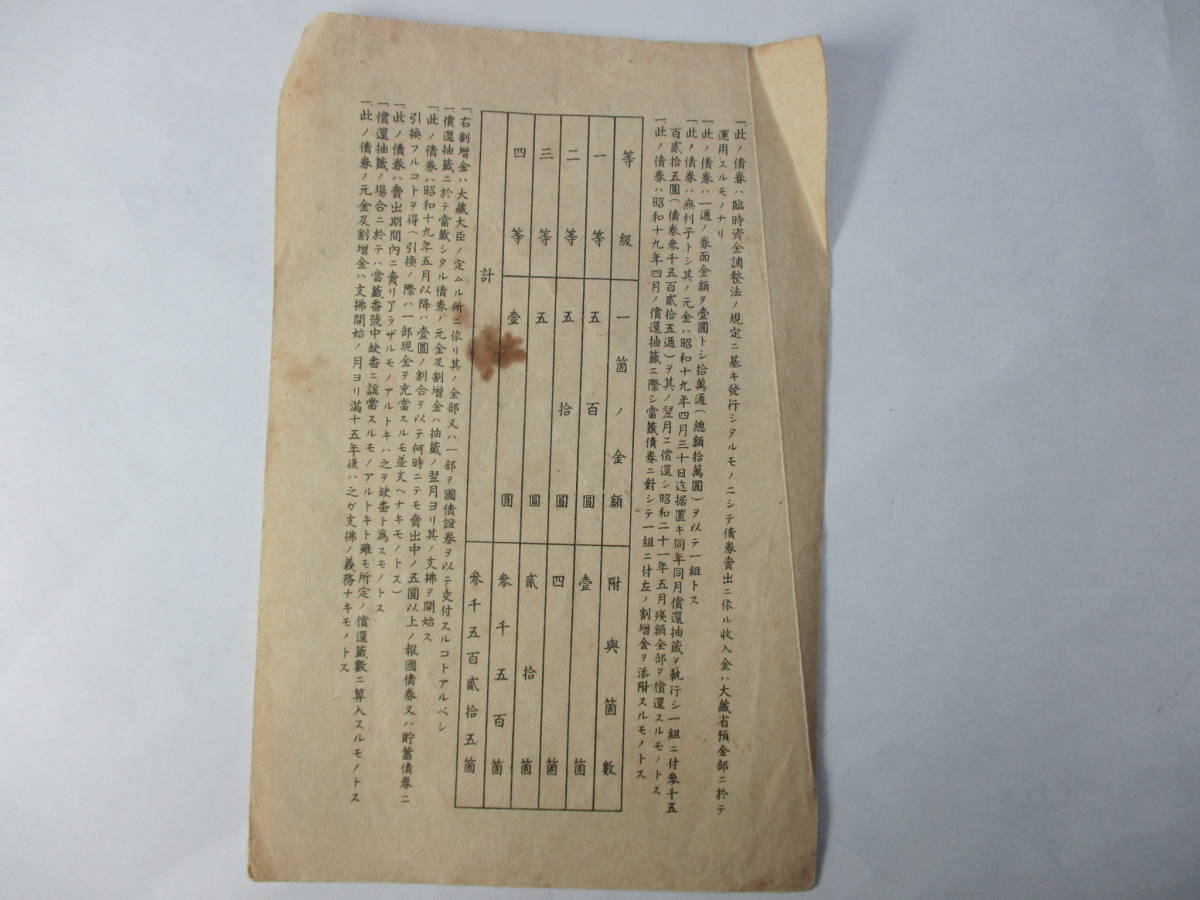 一、此ノ債券ハ臨時資金調整法ノ規定ニ基キ發行シタルモノニシテ債券賣出ニ依ル收入金ハ大藏省預金部ニ於テ
運用スルモノナリ
一、此ノ債券ハ一通ノ券面金額ヲ壹圓トシ拾萬通(總額拾萬圓)ヲ以テ一組トス
一、此ノ債券ハ無利子トシ其ノ元金ハ昭和十九年四月三十日迄据置キ同年同月償還抽籤ヲ執行シ一組ニ付參千五
百貳拾五圓(債券參千五百貳拾五通)ヲ其ノ翌月ニ償還シ昭和二十一年五月殘額全部ヲ償還スルモノトス
一、此ノ債券ハ昭和十九年四月ノ償還抽籤ニ際シ當籤債券ニ對シテ一組ニ付左ノ割增金ヲ添附スルモノトス
等級 一箇ノ金額 附與箇數
一等 五百圓 壹箇
二等 五拾圓 四箇
三等 五圓 貳拾箇
四等 壹圓 參千五百箇
計 參千五百貳拾五箇
一、右割增金ハ大藏大臣ノ定ムル所ニ依リ其ノ全部又ハ一部ヲ國債證券ヲ以テ交付スルコトアルベシ
一、償還抽籤ニ於テ當籤シタル債券ノ元金及割增金ハ抽籤ノ翌月ヨリ其ノ支拂ヲ開始ス
一、此ノ債券ハ昭和十九年五月以降ハ壹圓ノ割合ヲ以テ何時ニテモ賣出中ノ五圓以上ノ報國債券又ハ貯蓄債券ニ
引換フルコトヲ得(引換ノ際ハ一部現金ヲ充當スルモ差支ヘナキモノトス)
一、此ノ債券ハ賣出期間內ニ賣リ了ラザルモノアルトキハ之ヲ缺番ト爲スモノトス
一、償還抽籤ノ場合ニ於テハ當籤番號中缺番ニ該當スルモノアルトキト雖モ所定ノ償還籤數ニ算入スルモノトス
一、此ノ債券ノ元金及割增金ハ支拂開始ノ月ヨリ滿十五年後ハ之ガ支拂ノ義務ナキモノトス